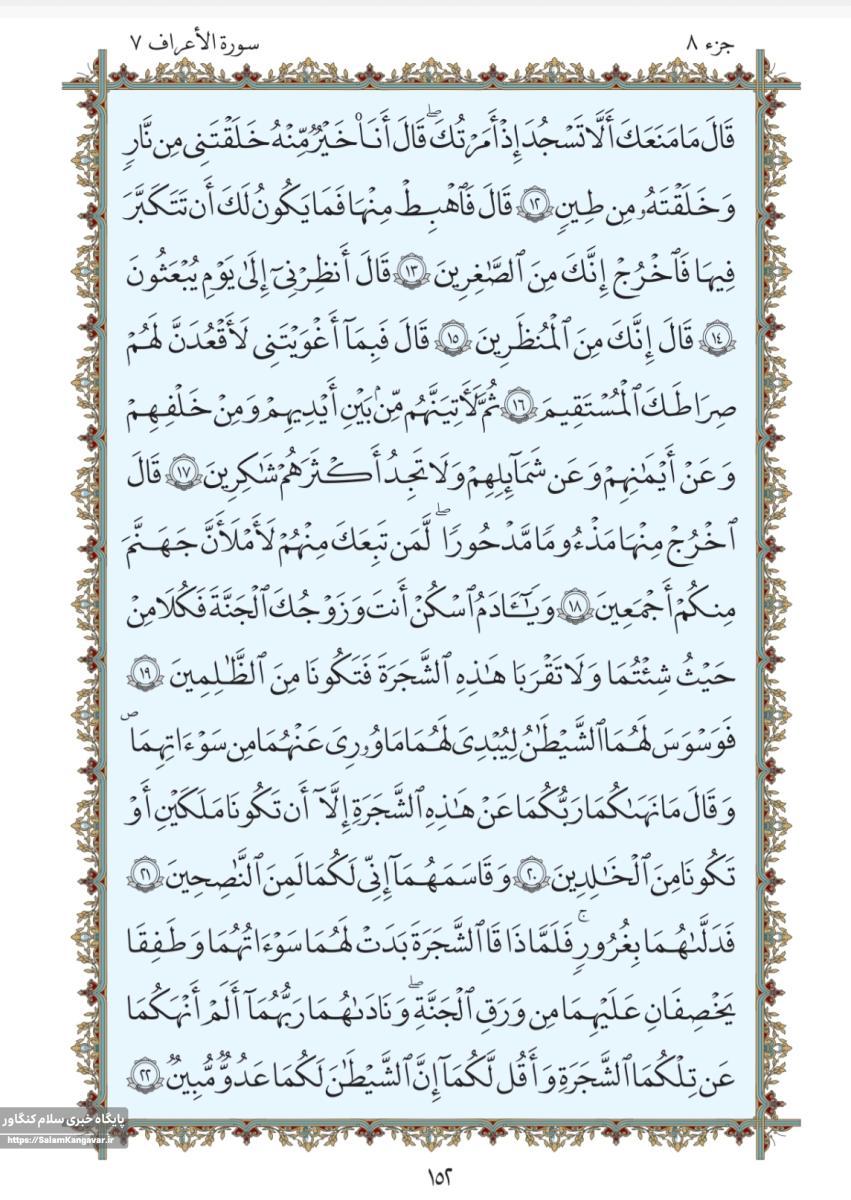 سورة الأعراف ٧
جزء ٨
قَالَ مَا مَنَعَكَ أَلَّا تَسْجُدَ إِذْ أَمَرْتُكَ ۖ قَالَ أَنَا۠ خَيْرٌ مِّنْهُ خَلَقْتَنِى مِن نَّارٍ
وَخَلَقْتَهُۥ مِن طِينٍ ١٢ قَالَ فَٱهْبِطْ مِنْهَا فَمَا يَكُونُ لَكَ أَن تَتَكَبَّرَ
فِيهَا فَٱخْرُجْ إِنَّكَ مِنَ ٱلصَّـٰغِرِينَ ١٣ قَالَ أَنظِرْنِىٓ إِلَىٰ يَوْمِ يُبْعَثُونَ
١٤ قَالَ إِنَّكَ مِنَ ٱلْمُنظَرِينَ ١٥ قَالَ فَبِمَآ أَغْوَيْتَنِى لَأَقْعُدَنَّ لَهُمْ
صِرَٰطَكَ ٱلْمُسْتَقِيمَ ١٦ ثُمَّ لَـَٔاتِيَنَّهُم مِّنۢ بَيْنِ أَيْدِيهِمْ وَمِنْ خَلْفِهِمْ
وَعَنْ أَيْمَـٰنِهِمْ وَعَن شَمَآئِلِهِمْ وَلَا تَجِدُ أَكْثَرَهُمْ شَـٰكِرِينَ ١٧ قَالَ
ٱخْرُجْ مِنْهَا مَذْءُومًا مَّدْحُورًا ۖ لَّمَن تَبِعَكَ مِنْهُمْ لَأَمْلَأَنَّ جَهَنَّمَ
مِنكُمْ أَجْمَعِينَ ١٨ وَيَـٰٓـَٔادَمُ ٱسْكُنْ أَنتَ وَزَوْجُكَ ٱلْجَنَّةَ فَكُلَا مِنْ
حَيْثُ شِئْتُمَا وَلَا تَقْرَبَا هَـٰذِهِ ٱلشَّجَرَةَ فَتَكُونَا مِنَ ٱلظَّـٰلِمِينَ ١٩
فَوَسْوَسَ لَهُمَا ٱلشَّيْطَـٰنُ لِيُبْدِىَ لَهُمَا مَا وُۥرِىَ عَنْهُمَا مِن سَوْءَٰتِهِمَا
وَقَالَ مَا نَهَىٰكُمَا رَبُّكُمَا عَنْ هَـٰذِهِ ٱلشَّجَرَةِ إِلَّآ أَن تَكُونَا مَلَكَيْنِ أَوْ
تَكُونَا مِنَ ٱلْخَـٰلِدِينَ ٢٠ وَقَاسَمَهُمَآ إِنِّى لَكُمَا لَمِنَ ٱلنَّـٰصِحِينَ ٢١
فَدَلَّىٰهُمَا بِغُرُورٍ ۚ فَلَمَّا ذَاقَا ٱلشَّجَرَةَ بَدَتْ لَهُمَا سَوْءَٰتُهُمَا وَطَفِقَا
يَخْصِفَانِ عَلَيْهِمَا مِن وَرَقِ ٱلْجَنَّةِ ۖ وَنَادَىٰهُمَا رَبُّهُمَآ أَلَمْ أَنْهَكُمَا
عَن تِلْكُمَا ٱلشَّجَرَةِ وَأَقُل لَّكُمَآ إِنَّ ٱلشَّيْطَـٰنَ لَكُمَا عَدُوٌّ مُّبِينٌ ٢٢
پایگاه خبری سلام کنگاور
https://SalamKangavar.ir
١٥٢